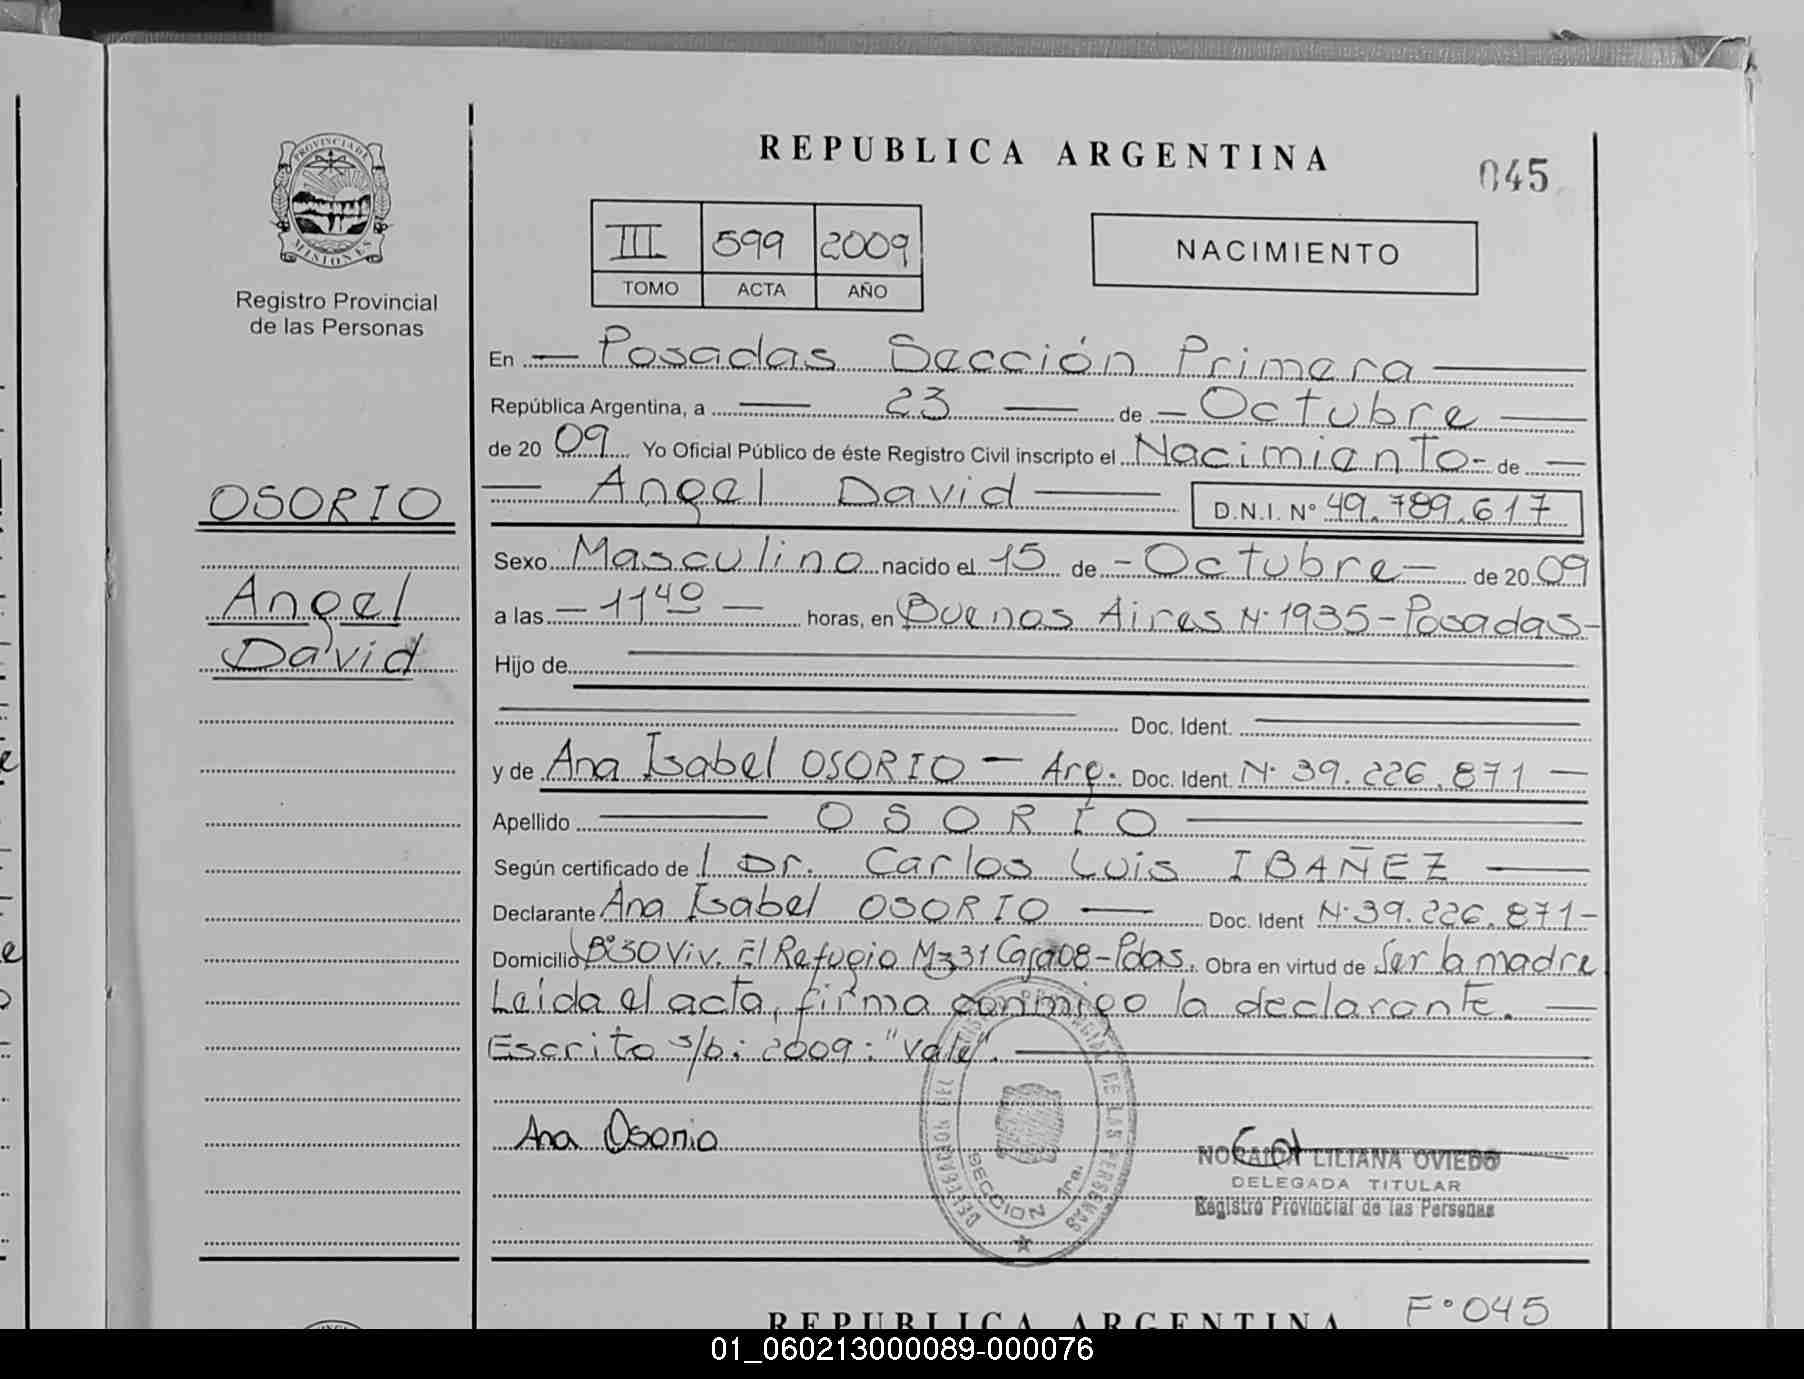 PROVINCIA DE
MISIONES
Registro Provincial
de las Personas
OSORIO
Angel
David
REPUBLICA ARGENTINA
045
III 599 2009
TOMO ACTA AÑO
NACIMIENTO
En — Posadas Sección Primera —
República Argentina, a — 23 — de — Octubre —
de 20 09 Yo Oficial Público de éste Registro Civil inscripto el Nacimiento - de —
— Angel David — D.N.I. N° 49.789.617
Sexo Masculino nacido el 15 de - Octubre - de 20 09
a las - 11 40 - horas, en Buenos Aires N° 1935 - Posadas -
Hijo de —
— Doc. Ident. —
y de Ana Isabel OSORIO — Arg. Doc. Ident. N° 39.226.871 —
Apellido — OSORIO —
Según certificado de l Dr. Carlos Luis IBAÑEZ —
Declarante Ana Isabel OSORIO — Doc. Ident N° 39.226.871 -
Domicilio B° 30 Viv. El Refugio Mz 31 Casa 08 - Pdas. Obra en virtud de Ser la madre
Leida el acta, firma conmigo la declarante. —
Escrito s/b: 2009: "Vale". —
Ana Osorio
DELEGACION DEL REGISTRO PROVINCIAL DE LAS PERSONAS
SECCION 1ra.
NORAIDA LILIANA OVIEDO
DELEGADA TITULAR
Registro Provincial de las Personas
F° 045
REPUBLICA ARGENTINA
01_060213000089-000076